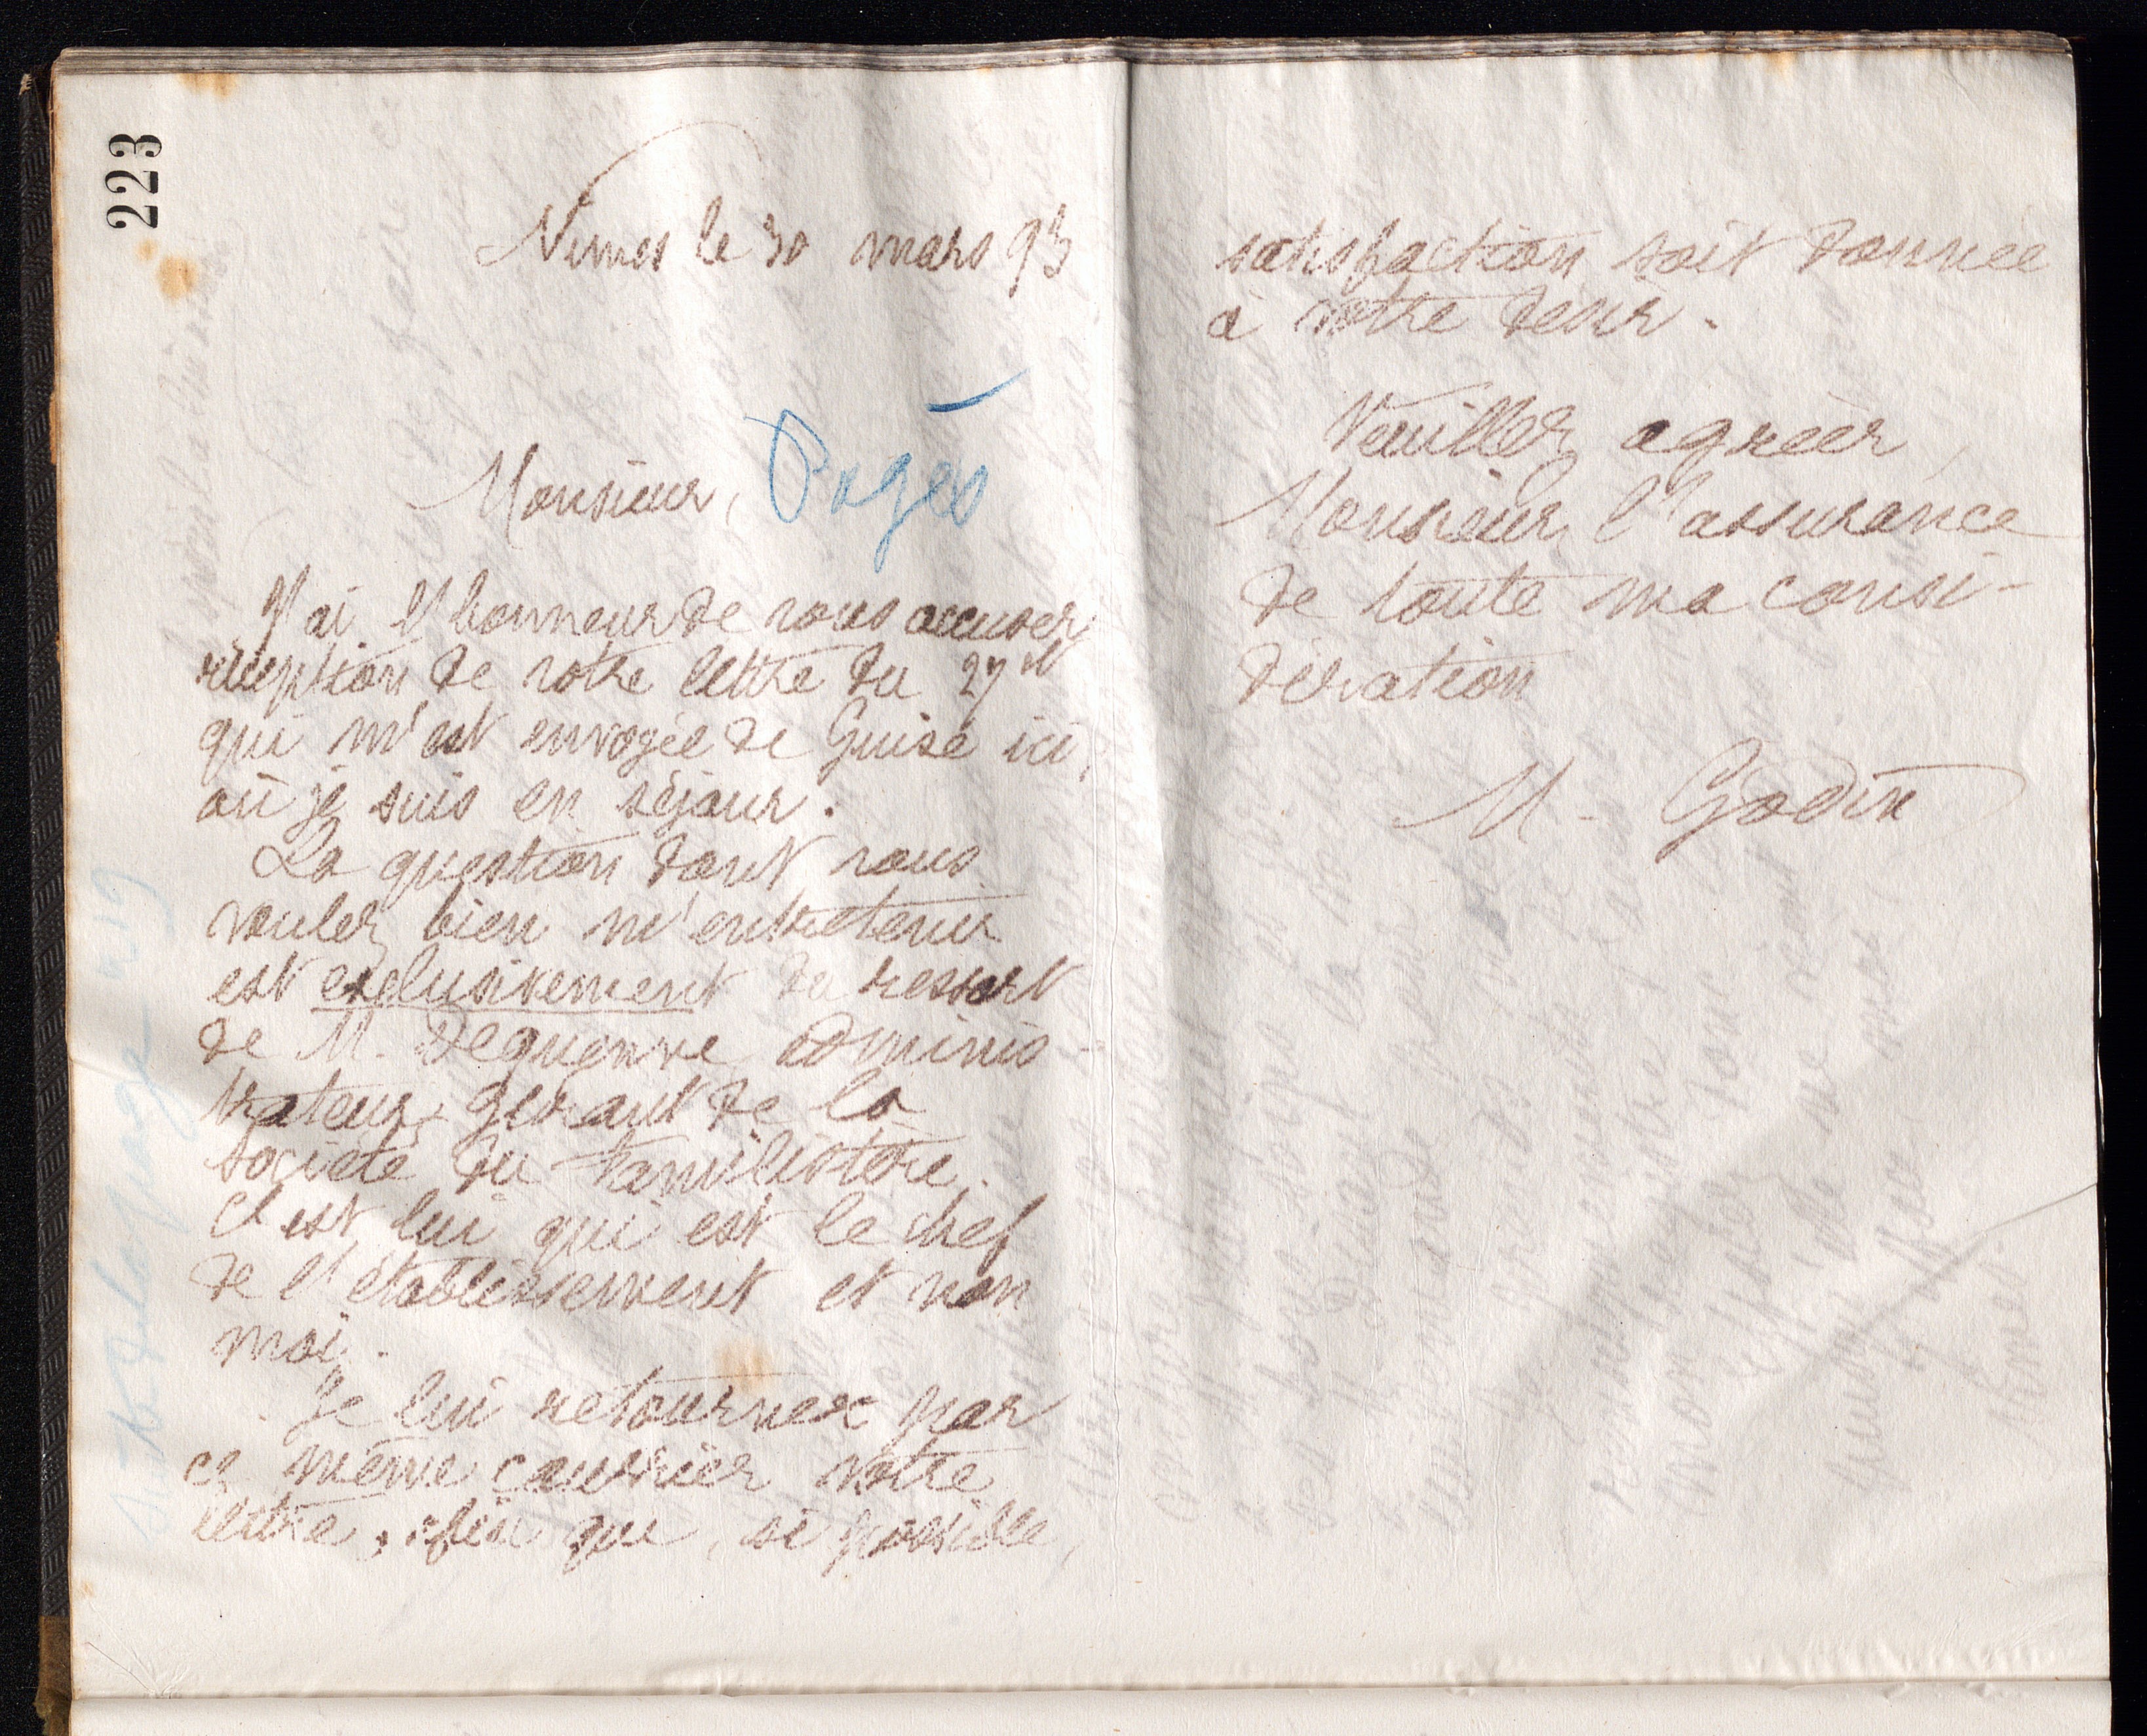 223
Nimes le 30 mars 93
Monsieur, Pagès
J'ai l'honneur de vous accuser
réception de votre lettre du 27 ct
qui m'est envoyée de Guise ici,
où je suis en séjour.
La question dont vous
voulez bien m'entretenir
est exclusivement du ressort
de M. Dequenne adminis-
trateur, gérant de la
société du Familistère.
C'est lui qui est le chef
de l'établissement et non
moi.
Je lui retourne par
ce même courrier votre
lettre, afin que, si possible,
satisfaction soit donnée
à votre désir.
Veuillez agréer,
Monsieur, l'assurance
de toute ma consi-
dération
M. Godin